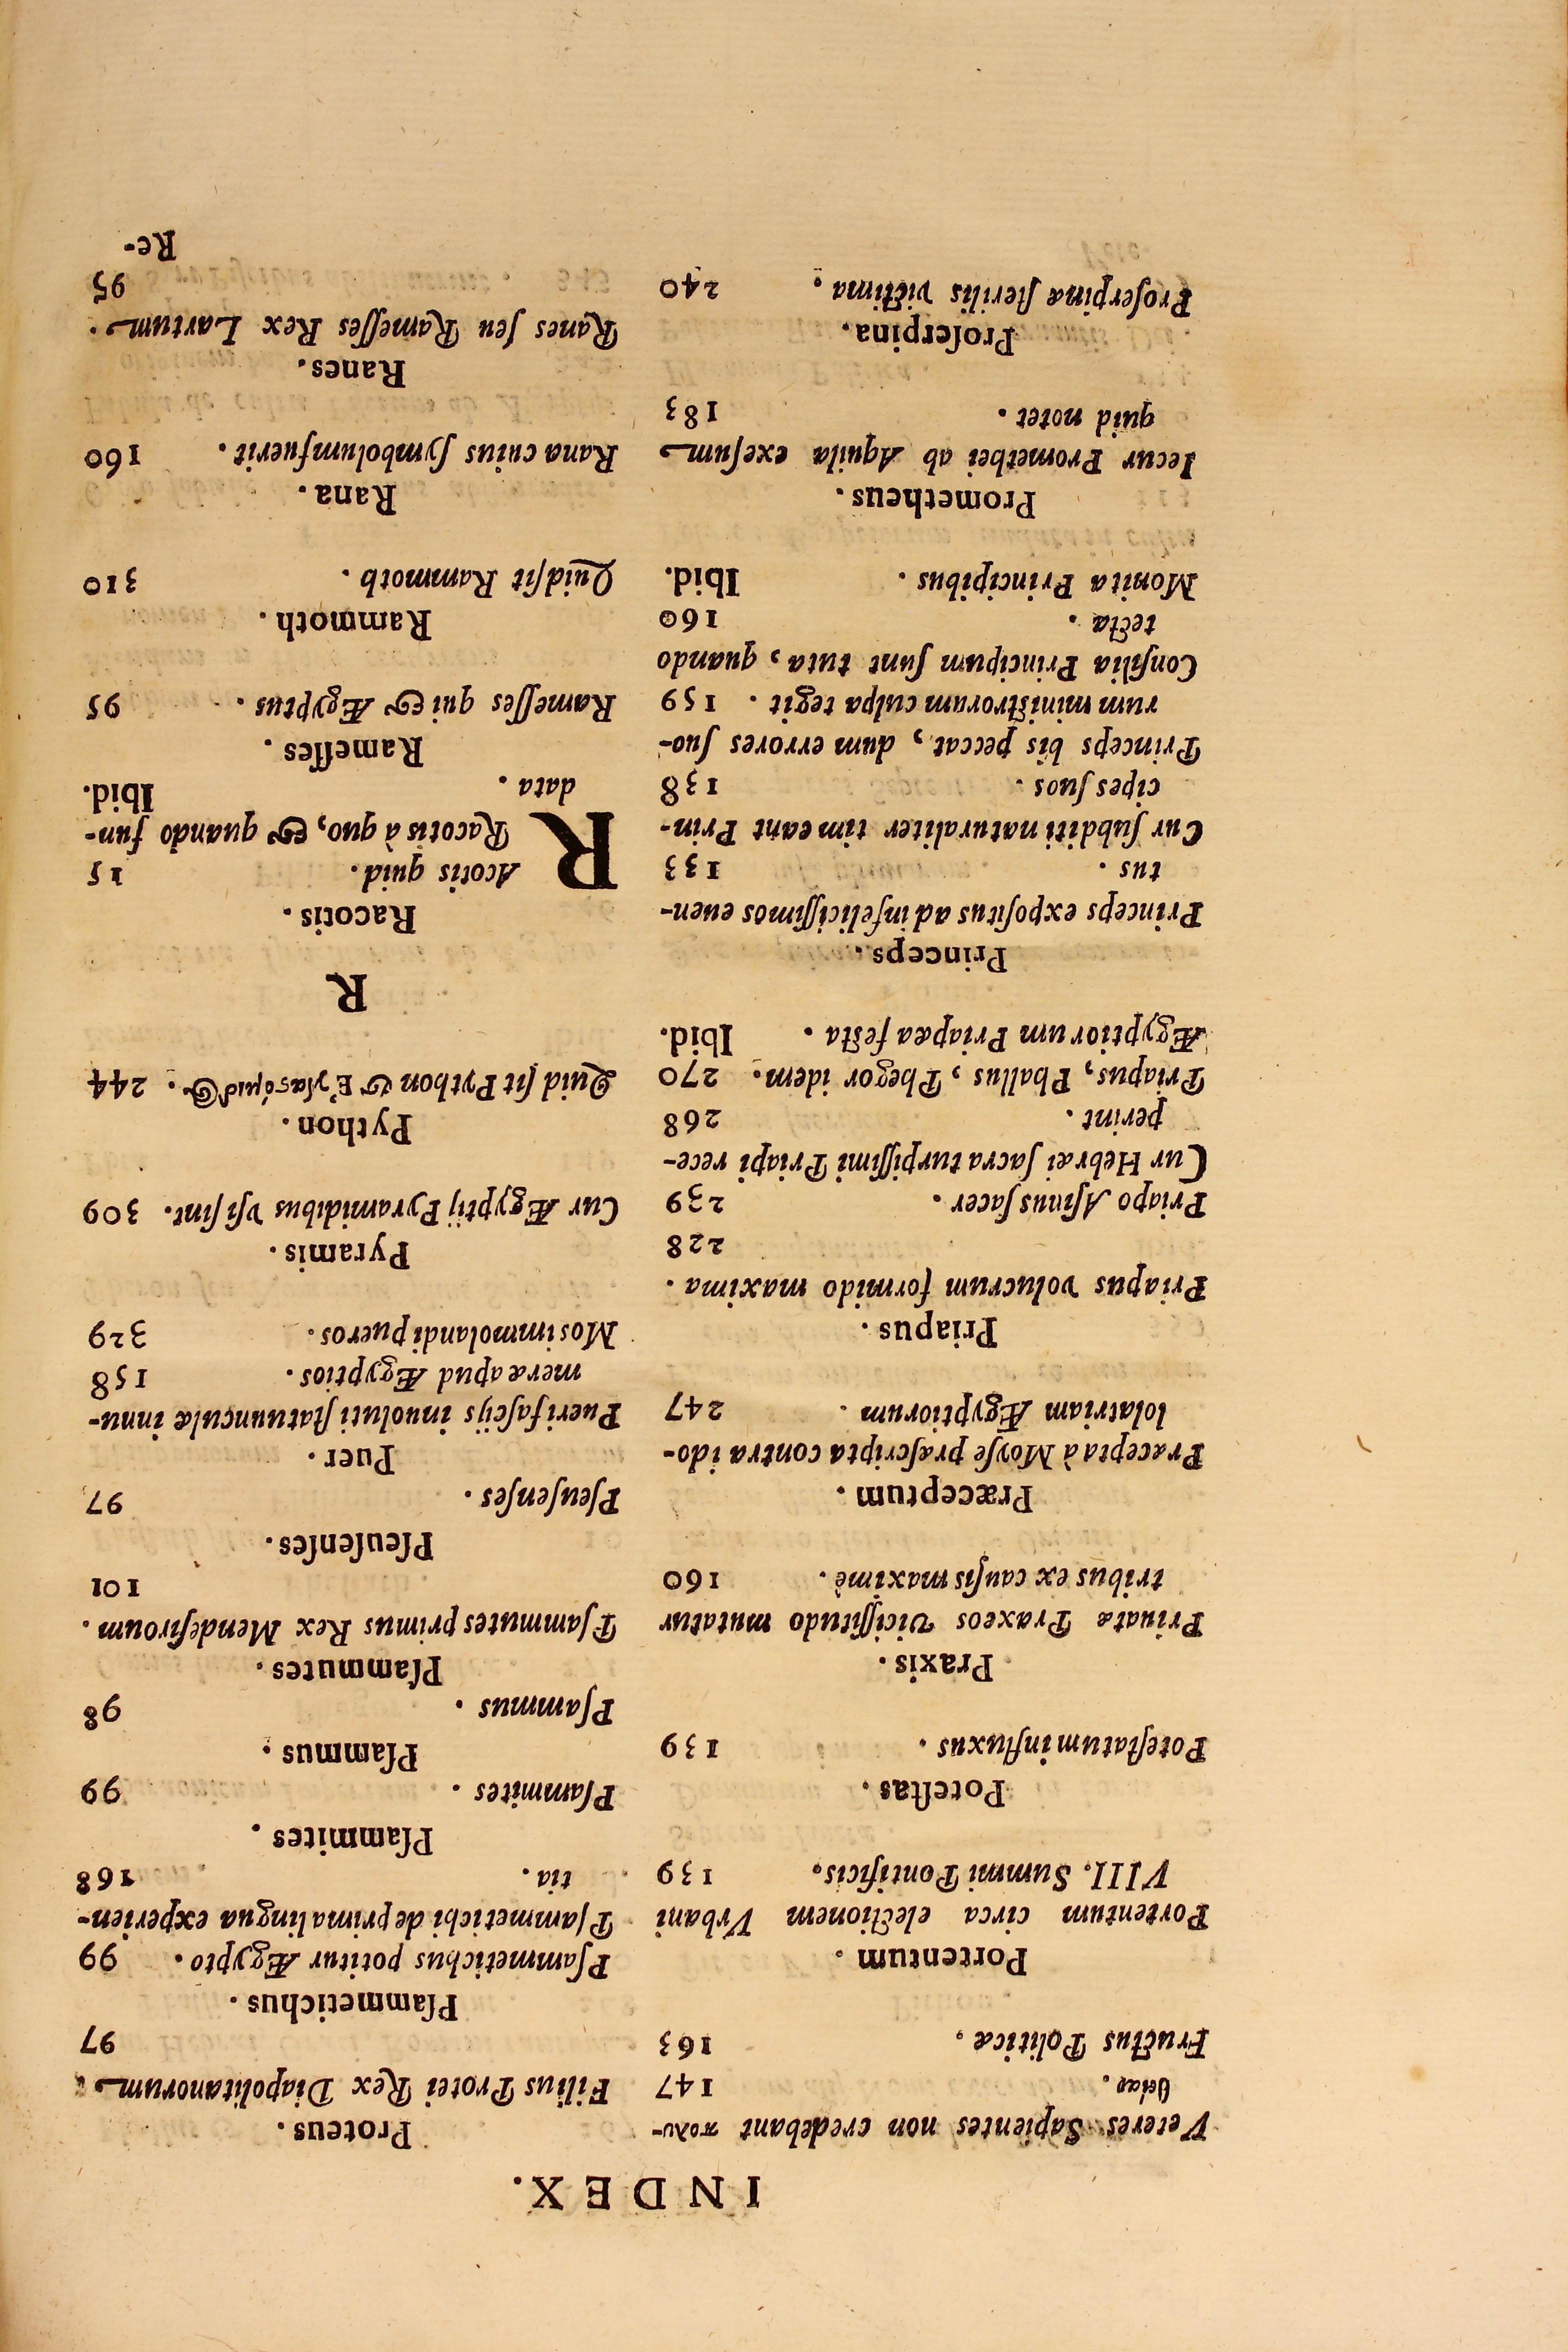 INDEX.
Veteres Sapientes non credebant πολυ-
θείας. 147
Fructus Politicæ. 163
Portentum.
Portentum circa electionem Vrbani
VIII. Summi Pontificis. 139
Poteſtas.
Poteſtatum influxus. 139
Praxis.
Priuatæ Praxeos viciſſitudo mutatur
tribus ex cauſis maximè. 160
Præceptum.
Præcepta à Moyſe præſcripta contra ido-
lolatriam Ægyptiorum. 247
Priapus.
Priapus volucrum formido maxima.
228
Priapo Aſinus ſacer. 239
Cur Hebræi ſacra turpiſſimi Priapi rece-
perint. 268
Priapus, Phallus, Phegor idem. 270
Ægyptiorum Priapæa feſta. Ibid.
Princeps.
Princeps expoſitus ad infeliciſſimos euen-
tus. 133
Cur ſubditi naturaliter timeant Prin-
cipes ſuos. 138
Princeps bis peccat, dum errores ſuo-
rum miniſtrorum culpa tegit. 159
Conſilia Principum ſunt tuta, quando
tecta. 160
Monita Principibus. Ibid.
Prometheus.
Iecur Promethei ab Aquila exeſum
quid notet. 183
Proſerpina.
Proſerpinæ ſterilis victima. 240
Proteus.
Filius Protei Rex Diapolitanorum.
97
Pſammetichus.
Pſammetichus potitur Ægypto. 99
Pſammetichi de prima lingua experien-
tia. 168
Pſammites.
Pſammites. 99
Pſammus.
Pſammus. 98
Pſammutes.
Pſammutes primus Rex Mendeſiroum.
101
Pſeuſenſes.
Pſeuſenſes. 97
Puer.
Pueri faſcijs inuoluti ſtatuunculæ innu-
meræ apud Ægyptios. 158
Mos immolandi pueros. 329
Pyramis.
Cur Ægyptij Pyramidibus vſi ſint. 309
Python.
Quid ſit Python & 244
R
Racotis.
RAcotis quid. 15
Racotis à quo, & quando fun-
data. Ibid.
Rameſſes.
Rameſſes qui & Ægyptus. 95
Rammoth.
Quid ſit Rammoth. 310
Rana.
Rana cuius ſymbolum fuerit. 160
Ranes.
Ranes ſeu Rameſſes Rex Lartum.
95
Re-